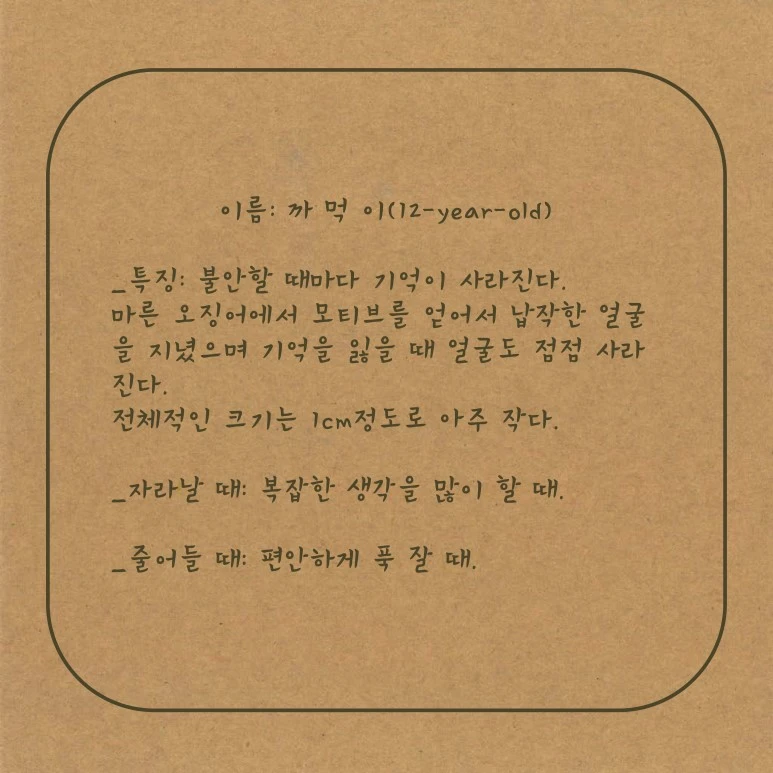 이름: 까 먹 이(12-year-old)
_특징: 불안할 때마다 기억이 사라진다.
마른 오징어에서 모티브를 얻어서 납작한 얼굴
을 지녔으며 기억을 잃을 때 얼굴도 점점 사라
진다.
전체적인 크기는 1cm정도로 아주 작다.
_자라날 때: 복잡한 생각을 많이 할 때.
_줄어들 때: 편안하게 푹 잘 때.